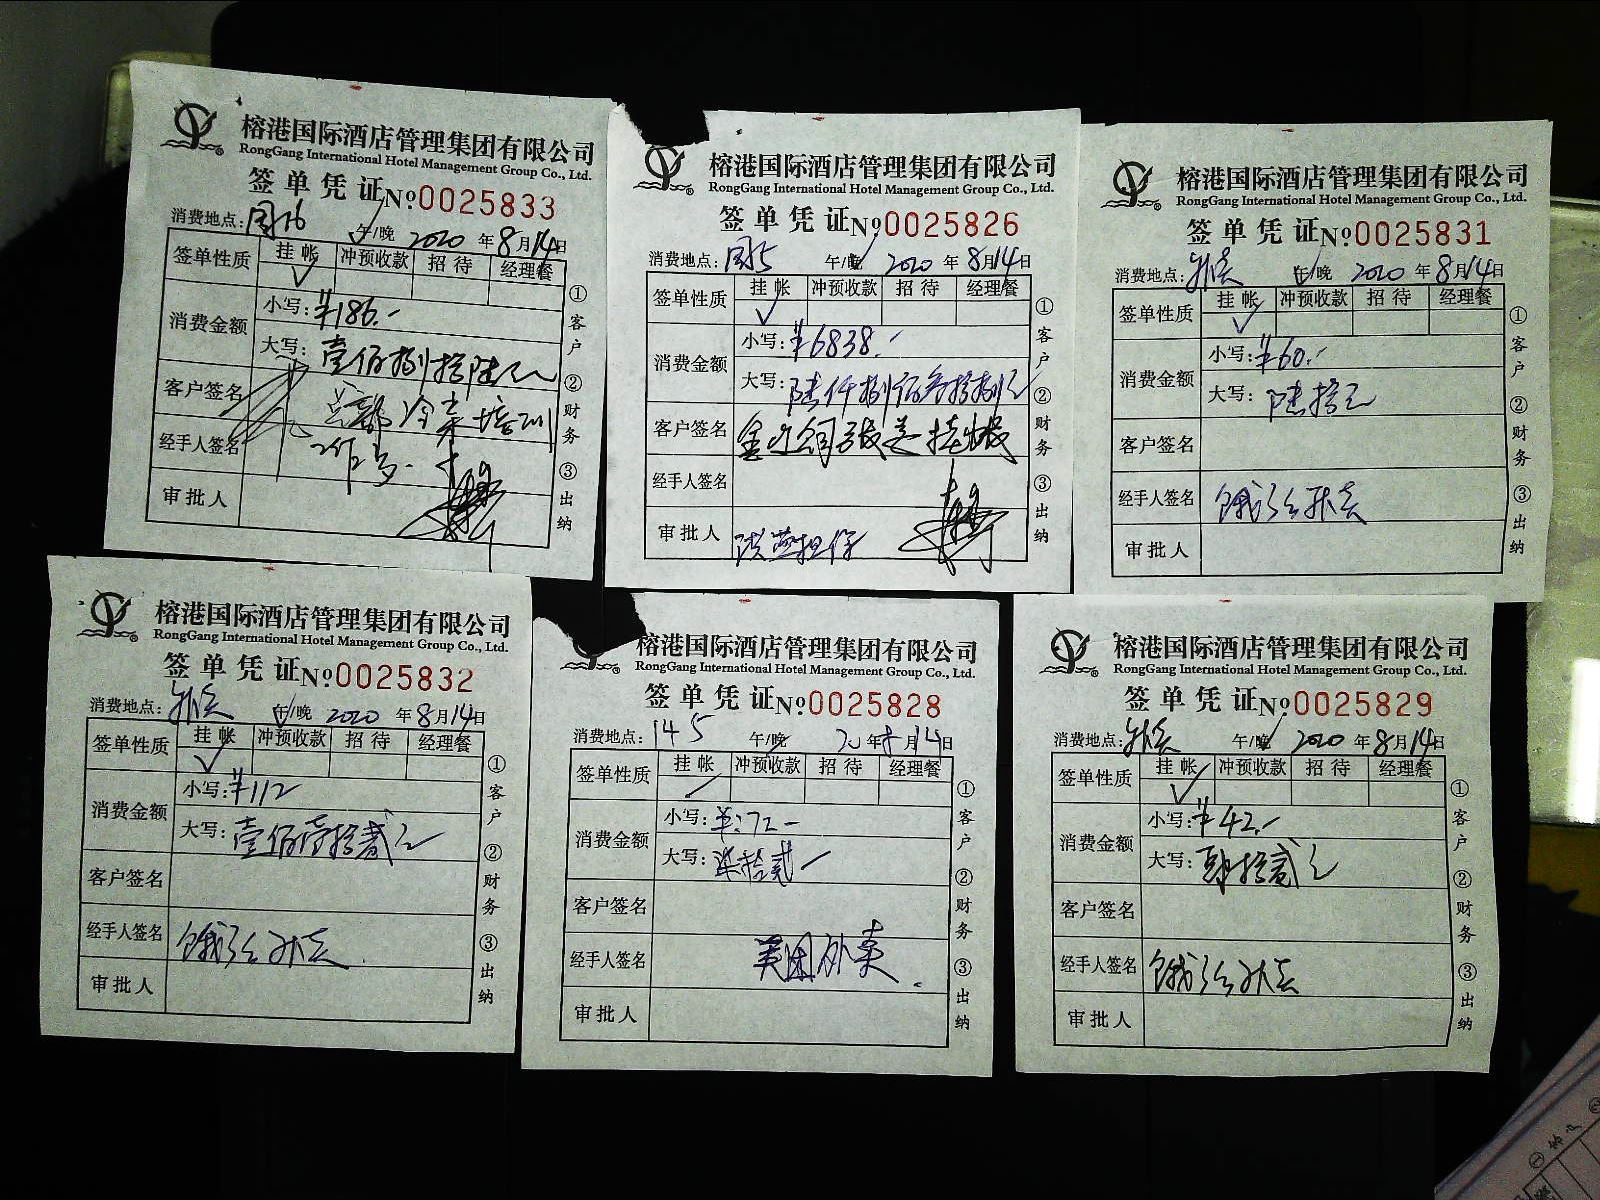 榕港国际酒店管理集团有限公司
RongGang International Hotel Management Group Co., Ltd.
签单凭证 №0025833
消费地点: 午/晚 2020 年 8 月 14 日
签单性质 挂帐 冲预收款 招待 经理餐
消费金额 小写: ¥186.-
大写: 壹佰捌拾陆元
客户签名
总部冷菜培训
经手人签名
审批人
①客户 ②财务 ③出纳
榕港国际酒店管理集团有限公司
RongGang International Hotel Management Group Co., Ltd.
签单凭证 №0025826
消费地点: 午/晚 2020 年 8 月 14 日
签单性质 挂帐 冲预收款 招待 经理餐
消费金额 小写: ¥6838.-
大写: 陆仟捌佰叁拾捌元
客户签名
经手人签名
审批人 担保
①客户 ②财务 ③出纳
榕港国际酒店管理集团有限公司
RongGang International Hotel Management Group Co., Ltd.
签单凭证 №0025831
消费地点: 外卖 午/晚 2020 年 8 月 14 日
签单性质 挂帐 冲预收款 招待 经理餐
消费金额 小写: ¥60.-
大写: 陆拾元
客户签名
经手人签名 饿了么外卖
审批人
①客户 ②财务 ③出纳
榕港国际酒店管理集团有限公司
RongGang International Hotel Management Group Co., Ltd.
签单凭证 №0025832
消费地点: 外卖 午/晚 2020 年 8 月 14 日
签单性质 挂帐 冲预收款 招待 经理餐
消费金额 小写: ¥112
大写: 壹佰壹拾贰元
客户签名
经手人签名 饿了么外卖
审批人
①客户 ②财务 ③出纳
榕港国际酒店管理集团有限公司
RongGang International Hotel Management Group Co., Ltd.
签单凭证 №0025828
消费地点: 145 午/晚 20 年 8 月 14 日
签单性质 挂帐 冲预收款 招待 经理餐
消费金额 小写: ¥:72-
大写: 柒拾贰
客户签名
经手人签名 美团外卖
审批人
①客户 ②财务 ③出纳
榕港国际酒店管理集团有限公司
RongGang International Hotel Management Group Co., Ltd.
签单凭证 №0025829
消费地点: 外卖 午/晚 2020 年 8 月 14 日
签单性质 挂帐 冲预收款 招待 经理餐
消费金额 小写: ¥42.-
大写: 肆拾贰元
客户签名
经手人签名 饿了么外卖
审批人
①客户 ②财务 ③出纳